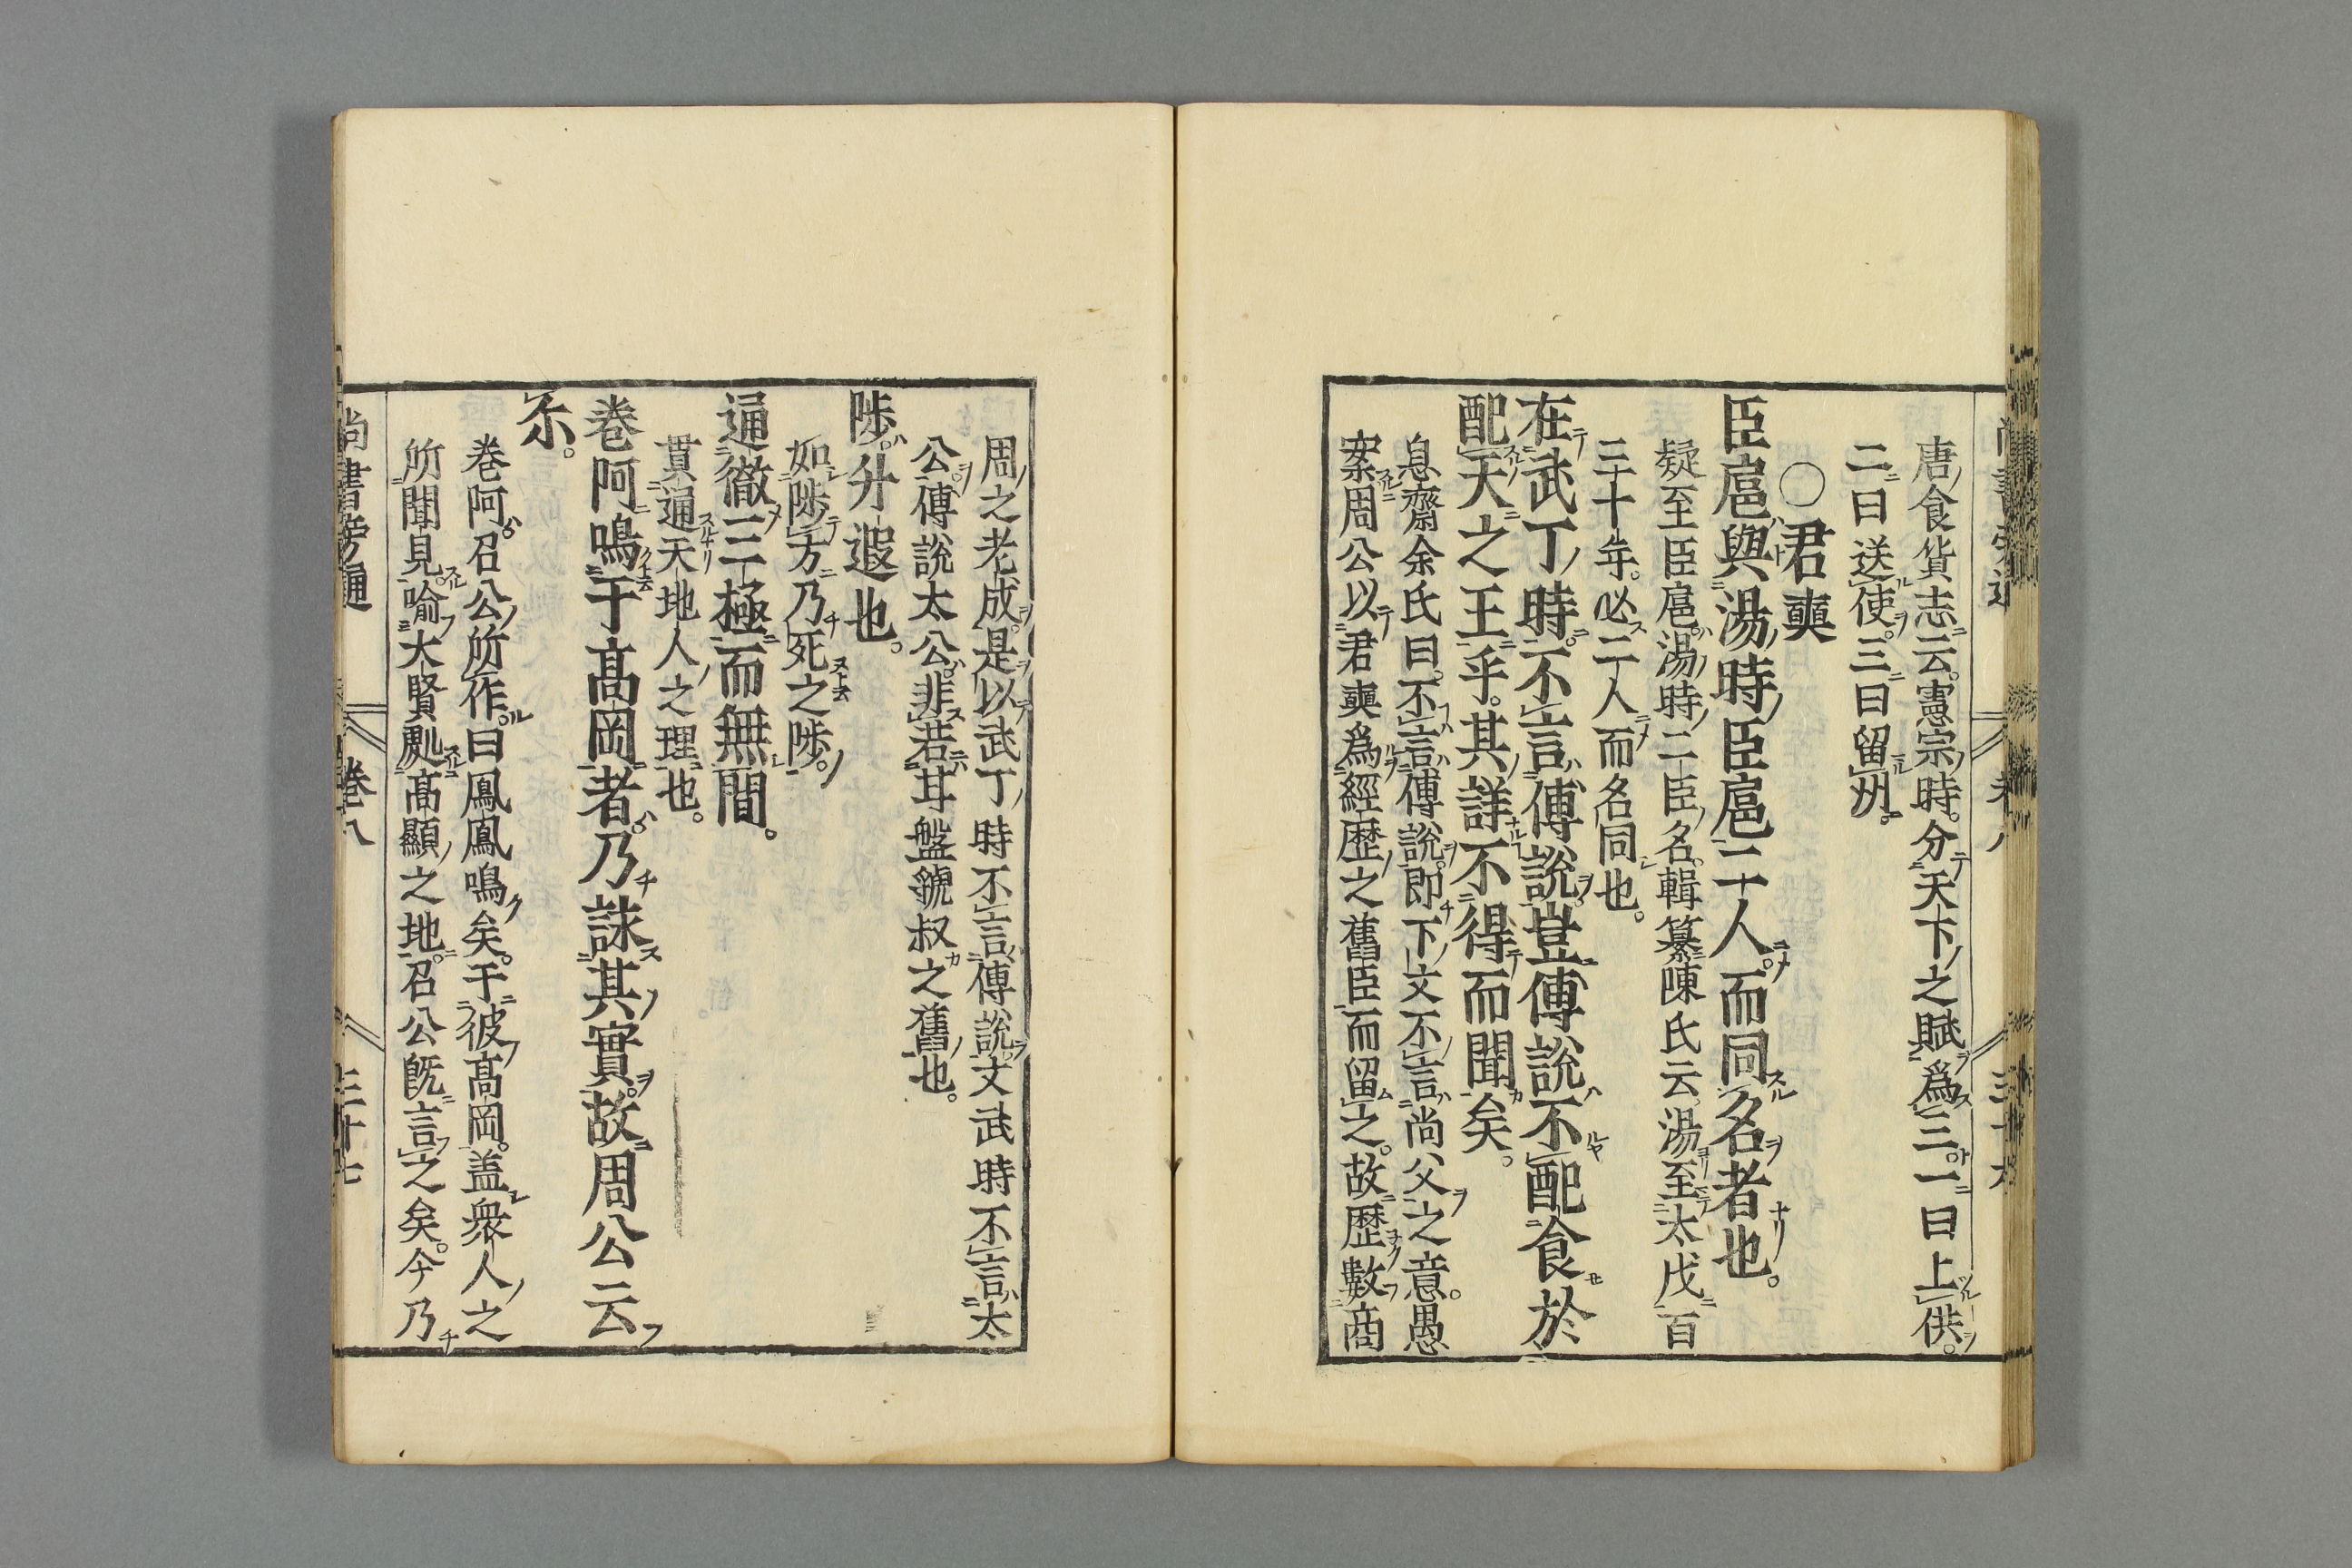 唐食貨志云。憲宗時。分天下之賦爲三。一曰上供。
二曰送使。三曰留州。
〇君奭
臣扈與湯時臣扈二人。而同名者也。
疑至臣扈。湯時二臣名。輯纂陳氏云。湯至太戊百
三十年。必二人而名同也。
在武丁時。不言傅說。豈傅說不配食於
配天之王乎。其詳不得而聞矣。
息齋余氏曰。不言傅說。即下文不言尚父之意。愚
案周公以君奭爲經歴之舊臣而留之。故歴數商
周之老成。是以武丁時不言傅說。文武時不言太
公。傅說太公。非若甘盤虢叔之舊也。
陟。升遐也。
如陟方乃死之陟。
通徹三極而無間。
貫通天地人之理也。
巻阿鳴于髙岡者。乃詠其實。故周公云
尓。
巻阿。召公所作。曰鳳凰鳴矣。于彼髙岡。盖衆人之
所聞見。喻大賢処髙顯之地。召公旣言之矣。今乃
尚書旁通 巻八 三十七